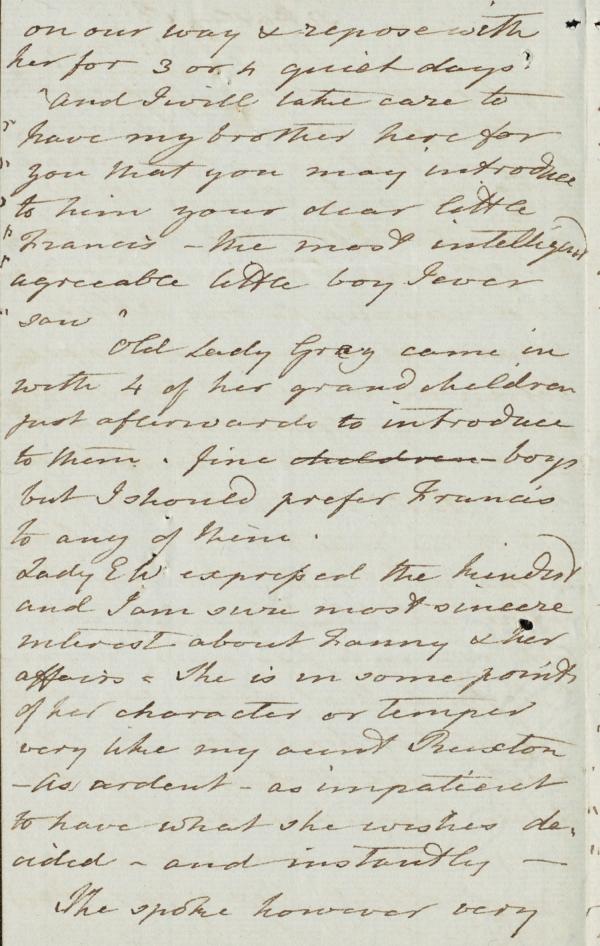 on our way & repose with
her for 3 or 4 quiet days.
"And I will take care to
have my brother here for
you that you may introduce
to him your dear little
Francis - the most intelligent
agreeable little boy I ever
saw"
Old Lady Grey came in
with 4 of her grand children
just afterwards to introduce
to them. fine children boys
but I should prefer Francis
to any of them.
Lady EW expressed the kindest
and I am sure most sincere
interest about Fanny & her
affairs - She is in some points
of her character or temper
very like my aunt Ruxton
- As ardent - as impatient
to have what she wishes de-
cided - and instantly —
She spoke however very